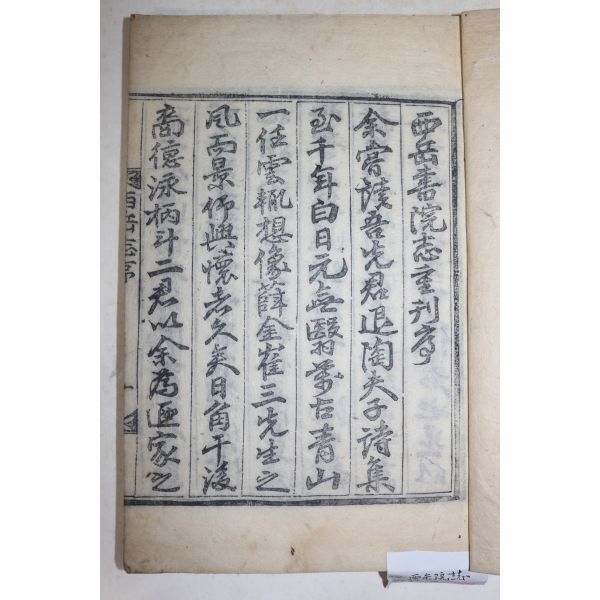 西岳書院志重刊序
余嘗讀吾先君退陶夫子詩集
至千年白日元無翳萬古青山
一任雲輒想像薛金崔三先生之
風而景仰興懷者久矣日角干後
裔德泳柄斗二君以余為匪家之
西岳志序
一
西岳院志